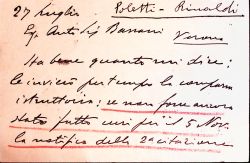 27 Luglio. Poletti - Rinaldi
Eg. Antonio Bassani Verona
Sta bene quanto mi dice;
le invierò per tempo la comparsa
istruttoria; se non fosse ancora
stata fatta curi per il 5 Nov.
la notifica della citazione